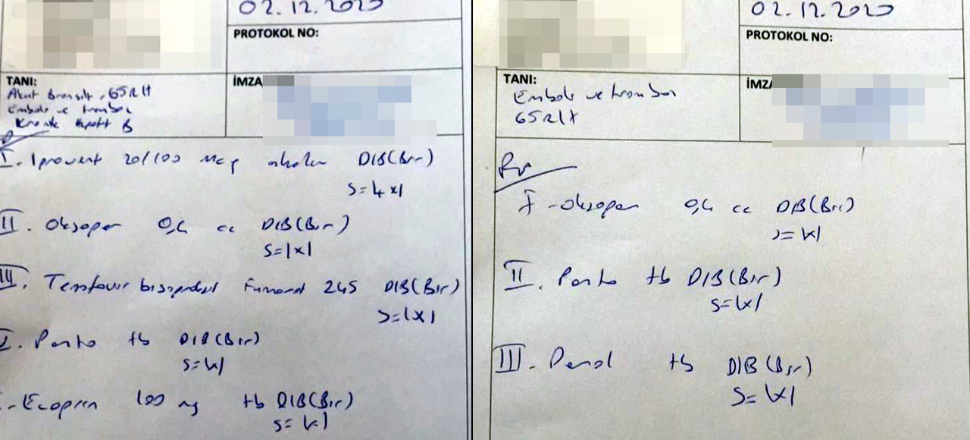 02.12.2023
PROTOKOL NO:
TANI:
İMZA
Akut Bronşit, G5RLH
Emboli ve tromboz
Kronik Hepatit B
I. Ipravent 20/100 mcg inhaler DIB(Bir)
S=4x1
II. Oksapar 0,4 cc DIB(Bir)
S=1x1
III. Tenofovir disoproksil Fumarat 245 DIB(Bir)
S=1x1
Panto tb DIB(Bir)
S=1x1
Ecopirin 100 mg tb DIB(Bir)
S=1x1
02.12.2023
PROTOKOL NO:
TANI:
Emboli ve tromboz
İMZA
Rp
I - Oksapar 0,4 cc DIB(Bir)
S=1x1
II. Panto tb DIB(Bir)
S=1x1
III. tb DIB(Bir)
S=1x1